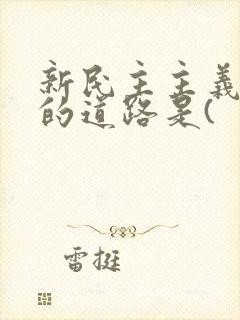 新民主主义
的道路是(
雷挺